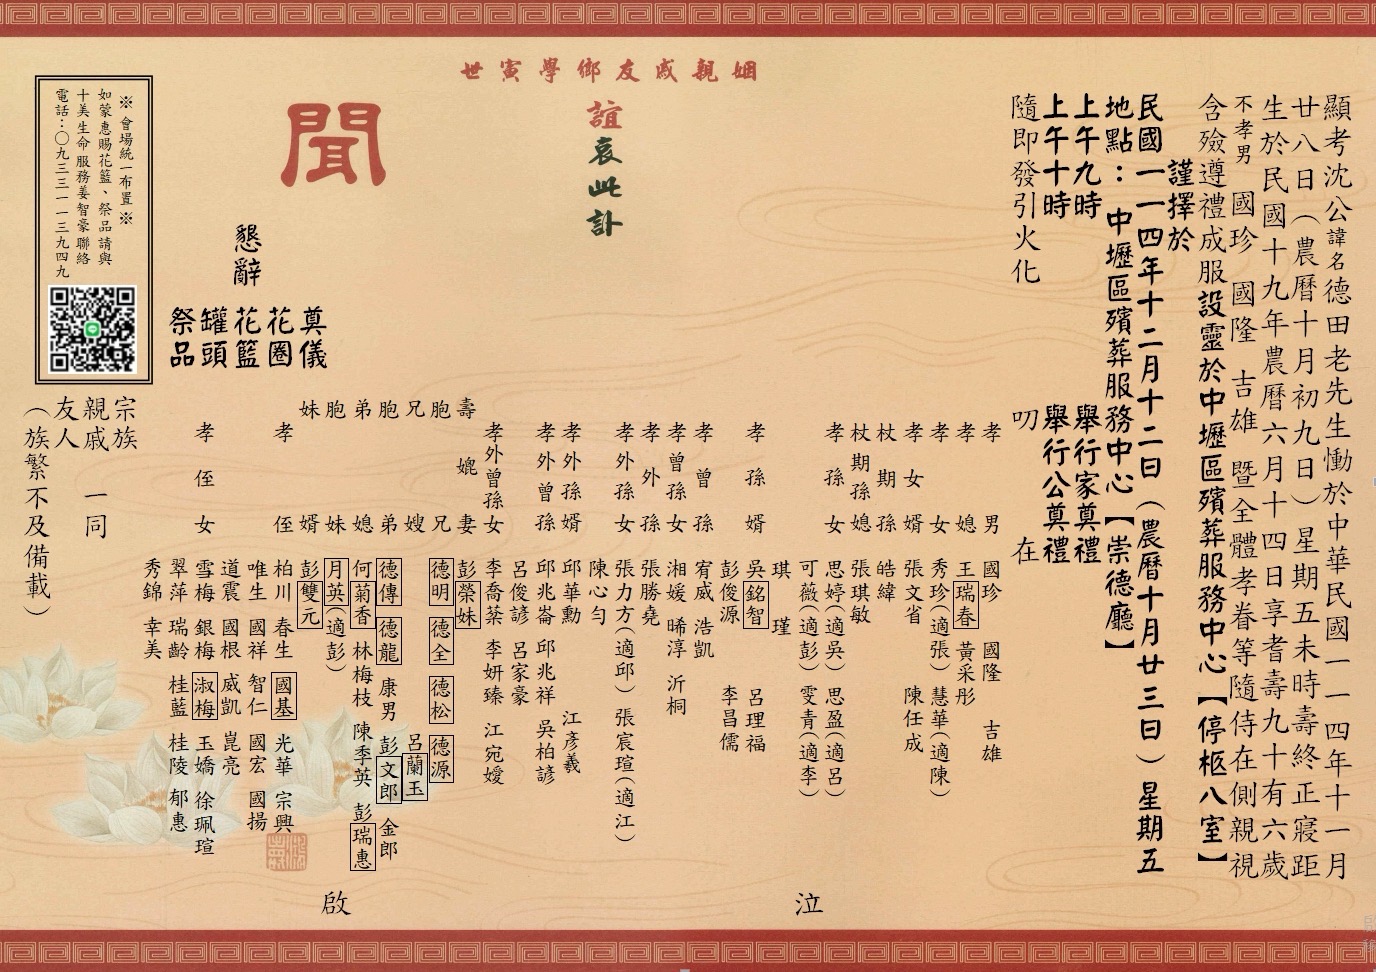 顯考沈公諱名德田老先生慟於中華民國一一四年十一月
廿八日（農曆十月初九日）星期五未時壽終正寢距
生於民國十九年農曆六月十四日享耆壽九十有六歲
不孝男 國珍 國隆 吉雄 暨全體孝眷等隨侍在側親視
含殮遵禮成服設靈於中壢區殯葬服務中心【停柩八室】
謹擇於
民國一一四年十二月十二日（農曆十月廿三日）星期五
地點：中壢區殯葬服務中心【崇德廳】
上午九時 舉行家奠禮
上午十時 舉行公奠禮
隨即發引火化
叨 在
姻親戚友鄉學寅世
誼哀此訃
聞
懇辭
奠儀
花圈
花籃
罐頭
祭品
孝男 國珍 國隆 吉雄
孝媳 王瑞春 黃采彤
孝女 秀珍(適張) 慧華(適陳)
孝女婿 張文省 陳任成
杖期孫 皓緯
杖期孫媳 張琪敏
孝孫女 思婷(適吳) 思盈(適呂)
可薇(適彭) 雯青(適李)
琪 瑾
孝孫婿 吳銘智 呂理福
彭俊源 李昌儒
孝曾孫 宥威 浩凱
孝曾孫女 湘媛 晞淳 沂桐
孝外孫 張勝堯
孝外孫女 張力方(適邱) 張宸瑄(適江)
陳心勻
孝外孫婿 邱華勳 江彥羲
孝外曾孫 邱兆崙 邱兆祥 吳柏諺
呂俊諺 呂家豪
孝外曾孫女 李喬棻 李妍臻 江宛嬡
護妻 彭榮妹
胞兄 德明 德全 德松 德源
胞嫂 呂蘭玉
胞弟 德傳 德龍 康男 彭文郎 金郎
弟媳 何菊香 林梅枝 陳季英 彭瑞惠
胞妹 月英(適彭)
妹婿 彭雙元
孝侄 柏川 春生 國基 光華 宗興
唯生 國祥 智仁 國宏 國揚
道震 國根 威凱 崑亮
孝侄女 雪梅 銀梅 淑梅 玉嬌 徐珮瑄
翠萍 瑞齡 桂藍 桂陵 郁惠
秀錦 幸美
泣
啟
宗族
親戚 一同
友人
（族繁不及備載）
※ 會場統一布置 ※
如蒙惠賜花籃、祭品請與
十美生命服務姜智豪聯絡
電話：〇九三三一一三九四九